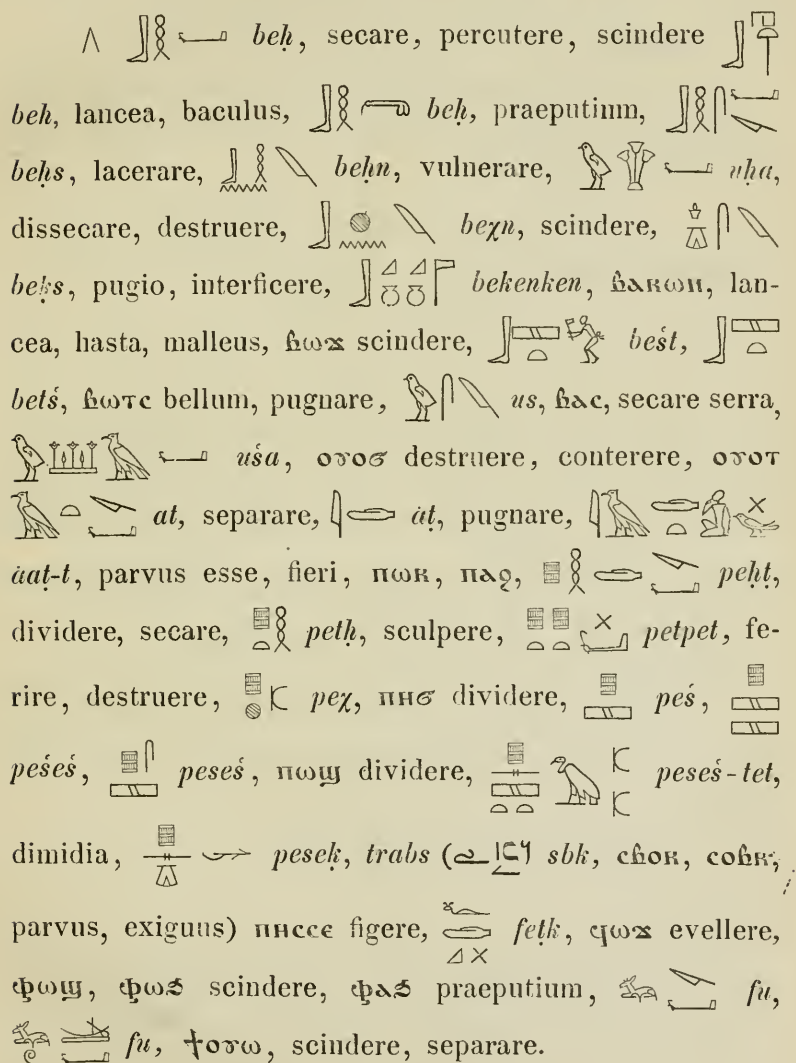 Λ 𓃀𓎛𓂝 beḥ, secare, percutere, scindere 𓃀
beh, lancea, baculus, 𓃀𓎛𓂸 beḥ, praeputium, 𓃀𓎛𓋴
beḥs, lacerare, 𓃀𓎛𓈖𓌪 beḥn, vulnerare, 𓅱𓇉𓂝 uḥa,
dissecare, destruere, 𓃀𓐍𓈖𓌪 beχn, scindere, 𓋴𓌪
beḳs, pugio, interficere, 𓃀𓈎𓏌𓈎𓏌𓊹 bekenken, ⲃⲁⲕⲱⲛ, lan-
cea, hasta, malleus, ⲃⲱϫ scindere, 𓃀𓈙𓏏𓀜 beśt, 𓃀𓈙𓏏
betś, ⲃⲱⲧⲥ bellum, pugnare, 𓅱𓋴𓌪 us, ⲃⲁⲥ, secare serra,
𓅱𓆷𓄿𓂝 uśa, ⲟⲩⲟϭ destruere, conterere, ⲟⲩⲟⲧ
𓄿𓏏 at, separare, 𓇋𓂧 ȧṭ, pugnare, 𓇋𓄿𓂧𓏏𓏴𓅪
ȧaṭ-t, parvus esse, fieri, ⲡⲱⲕ, ⲡⲁϩ, 𓊪𓎛𓂧 peḥṭ,
dividere, secare, 𓊪𓏏𓎛 petḥ, sculpere, 𓊪𓏏𓊪𓏏𓏴𓂝 petpet, fe-
rire, destruere, 𓊪𓐍 peχ, ⲡⲏϭ dividere, 𓊪𓈙 peś, 𓊪𓈙𓈙
peśeś, 𓊪𓋴𓈙 peseś, ⲡⲱϣ dividere, 𓊪𓊃𓈙𓏏𓏏𓅐 peseś-tet,
dimidia, 𓊪𓊃𓎼 peseḳ, trabs ( sbk, ⲥⲃⲟⲕ, ⲥⲟⲃⲕ,
parvus, exiguus) ⲡⲏⲥⲥⲉ figere, 𓆑𓂧𓈎𓏴 feṭk, ϥⲱϫ evellere,
ⲫⲱϣ, ⲫⲱϧ scindere, ⲫⲁϧ praeputium, fu,
fu, ϯⲟⲩⲱ, scindere, separare.